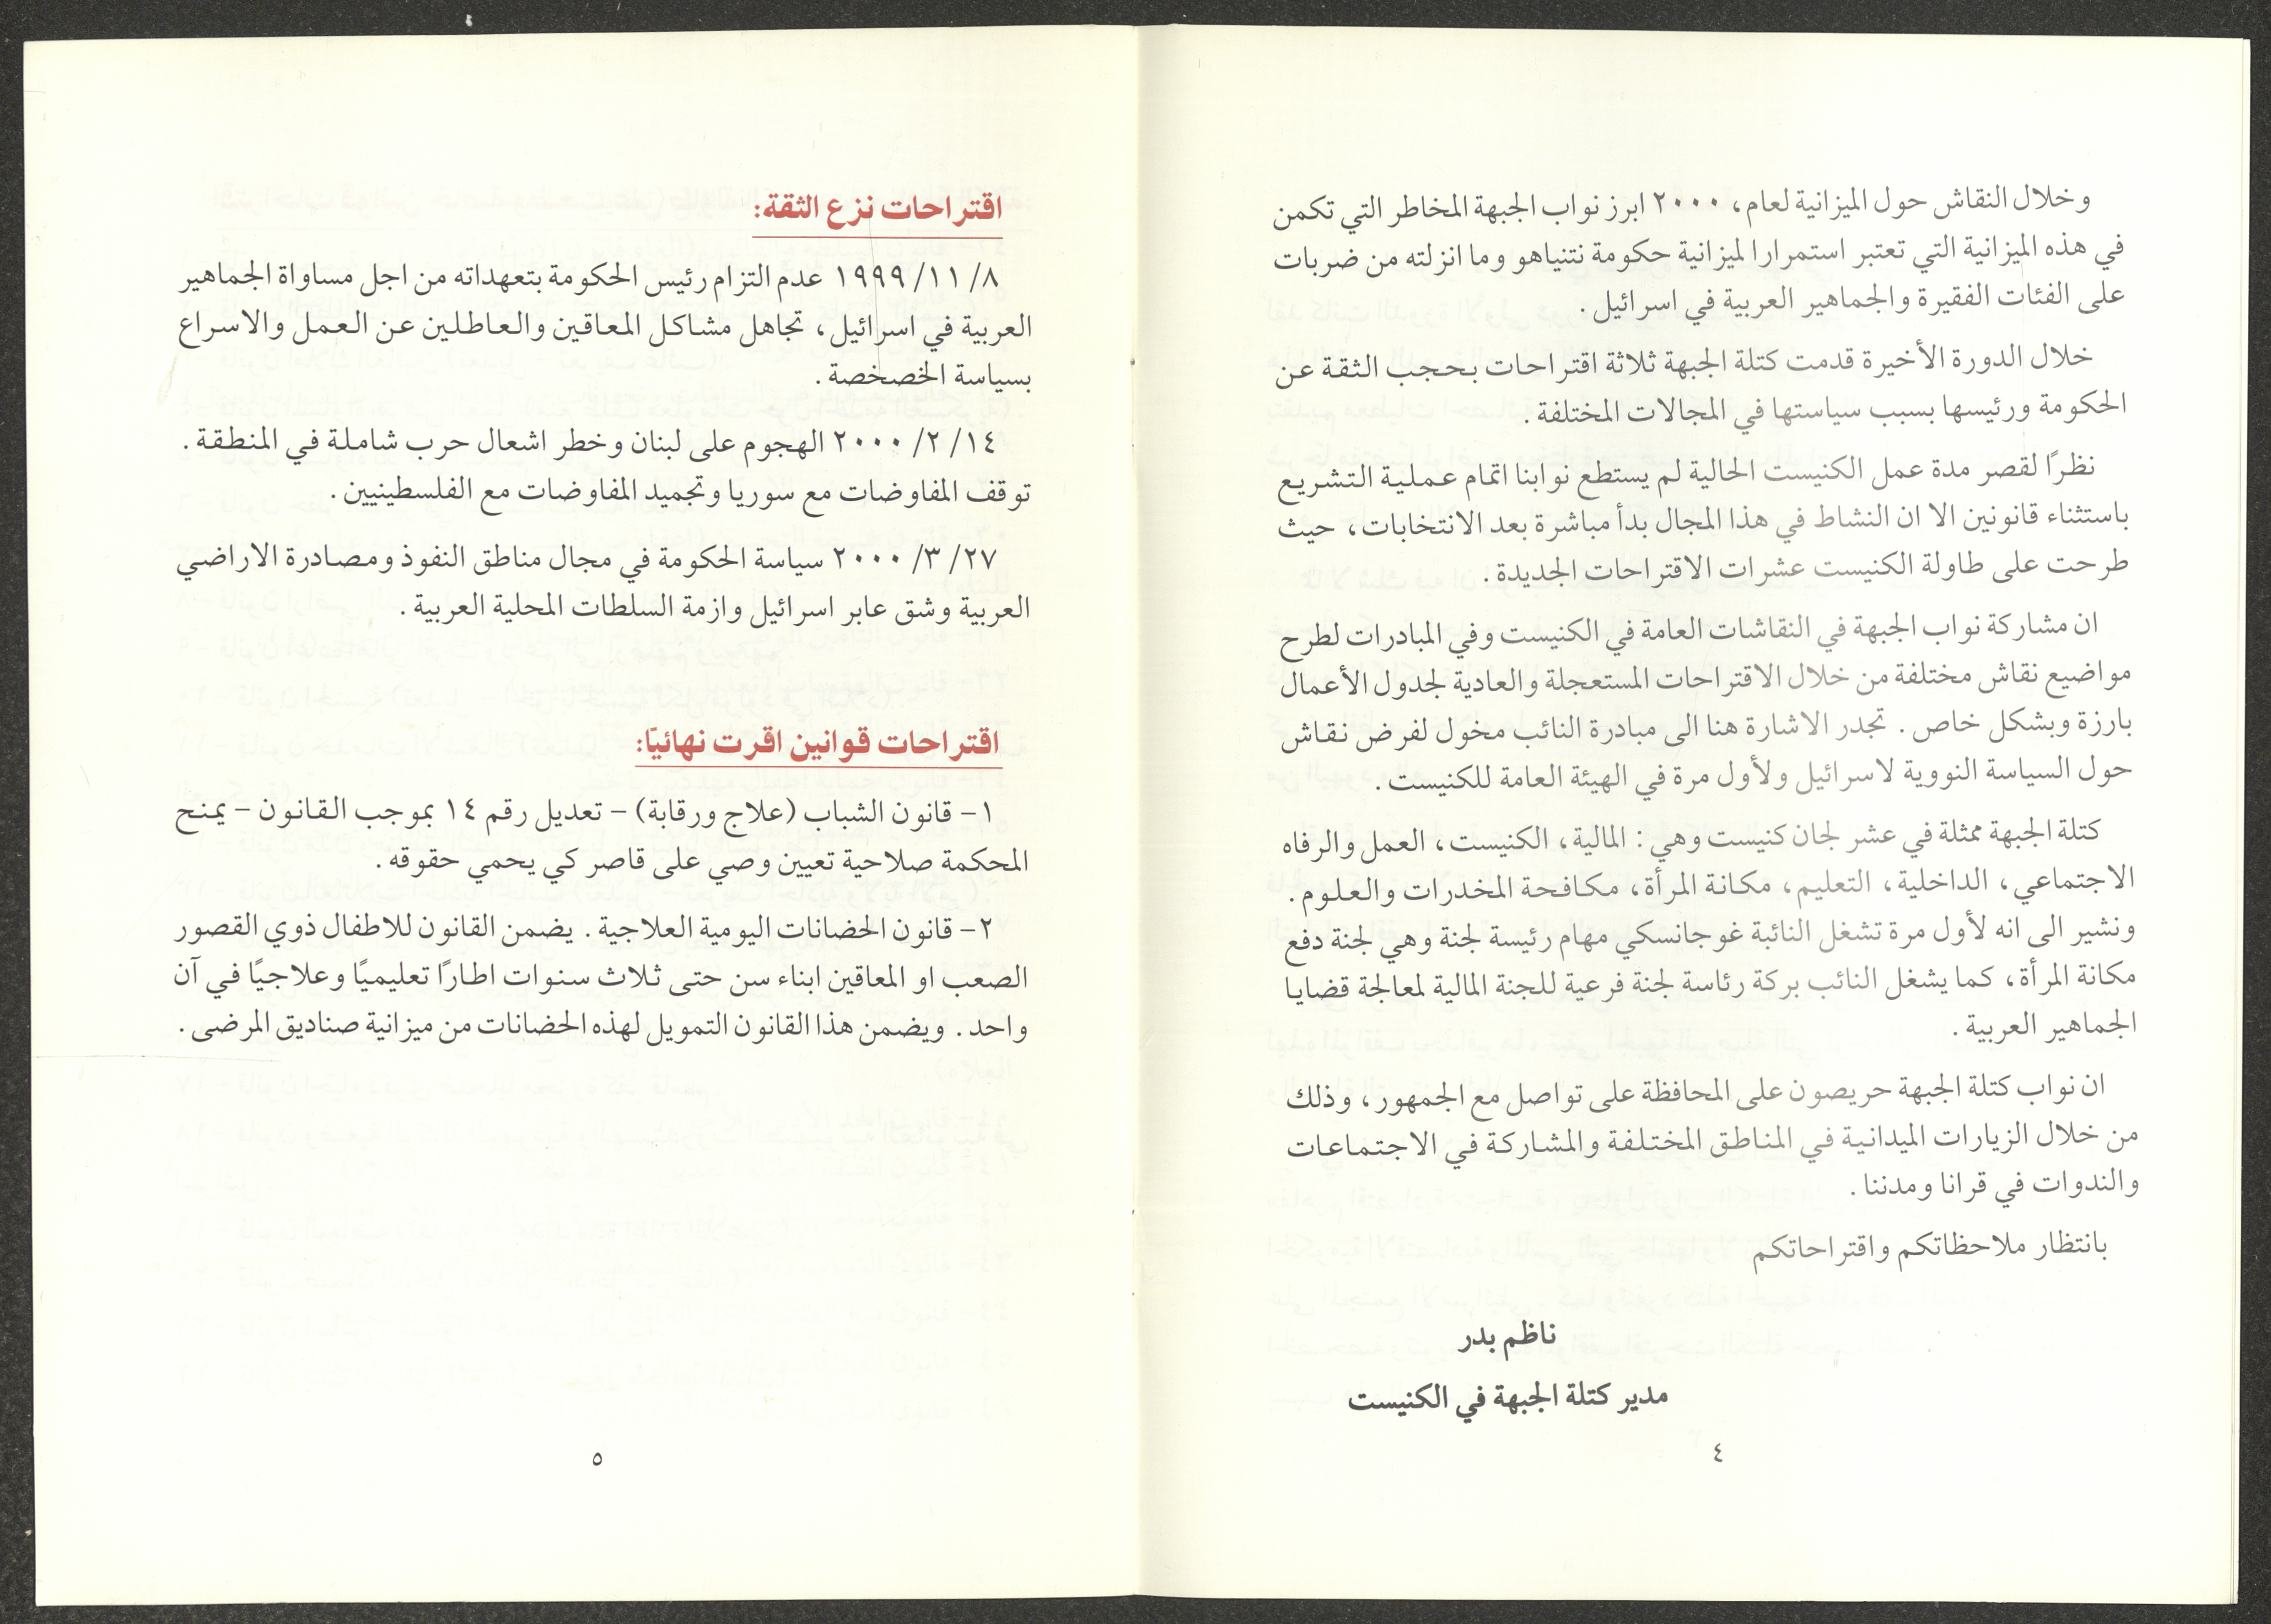 وخلال النقاش حول الميزانية لعام، ٢٠٠٠ ابرز نواب الجبهة المخاطر التي تكمن
في هذه الميزانية التي تعتبر استمرارا لميزانية حكومة نتنياهو وما انزلته من ضربات
على الفئات الفقيرة والجماهير العربية في اسرائيل.
خلال الدورة الأخيرة قدمت كتلة الجبهة ثلاثة اقتراحات بحجب الثقة عن
الحكومة ورئيسها بسبب سياستها في المجالات المختلفة.
نظرًا لقصر مدة عمل الكنيست الحالية لم يستطع نوابنا اتمام عملية التشريع
باستثناء قانونين الا ان النشاط في هذا المجال بدأ مباشرة بعد الانتخابات، حيث
طرحت على طاولة الكنيست عشرات الاقتراحات الجديدة.
ان مشاركة نواب الجبهة في النقاشات العامة في الكنيست وفي المبادرات لطرح
مواضيع نقاش مختلفة من خلال الاقتراحات المستعجلة والعادية لجدول الأعمال
بارزة وبشكل خاص. تجدر الاشارة هنا الى مبادرة النائب مخول لفرض نقاش
حول السياسة النووية لاسرائيل ولأول مرة في الهيئة العامة للكنيست.
كتلة الجبهة ممثلة في عشر لجان كنيست وهي: المالية، الكنيست، العمل والرفاه
الاجتماعي، الداخلية، التعليم، مكانة المرأة، مكافحة المخدرات والعلوم.
ونشير الى انه لأول مرة تشغل النائبة غوجانسكي مهام رئيسة لجنة وهي لجنة دفع
مكانة المرأة، كما يشغل النائب بركة رئاسة لجنة فرعية للجنة المالية لمعالجة قضايا
الجماهير العربية.
ان نواب كتلة الجبهة حريصون على المحافظة على تواصل مع الجمهور، وذلك
من خلال الزيارات الميدانية في المناطق المختلفة والمشاركة في الاجتماعات
والندوات في قرانا ومدننا.
بانتظار ملاحظاتكم واقتراحاتكم
ناظم بدر
مدير كتلة الجبهة في الكنيست
٤
اقتراحات نزع الثقة:
٨/ ١١/ ١٩٩٩ عدم التزام رئيس الحكومة بتعهداته من اجل مساواة الجماهير
العربية في اسرائيل، تجاهل مشاكل المعاقين والعاطلين عن العمل والاسراع
بسياسة الخصخصة.
١٤/ ٢/ ٢٠٠٠ الهجوم على لبنان وخطر اشعال حرب شاملة في المنطقة.
توقف المفاوضات مع سوريا وتجميد المفاوضات مع الفلسطينيين.
٢٧/ ٣/ ٢٠٠٠ سياسة الحكومة في مجال مناطق النفوذ ومصادرة الاراضي
العربية وشق عابر اسرائيل وازمة السلطات المحلية العربية.
اقتراحات قوانين اقرت نهائيًا:
١- قانون الشباب (علاج ورقابة) - تعديل رقم ١٤ بموجب القانون - يمنح
المحكمة صلاحية تعيين وصي على قاصر كي يحمي حقوقه.
٢- قانون الحضانات اليومية العلاجية. يضمن القانون للاطفال ذوي القصور
الصعب او المعاقين ابناء سن حتى ثلاث سنوات اطارًا تعليميًا وعلاجيًا في آن
واحد. ويضمن هذا القانون التمويل لهذه الحضانات من ميزانية صناديق المرضى.
٥